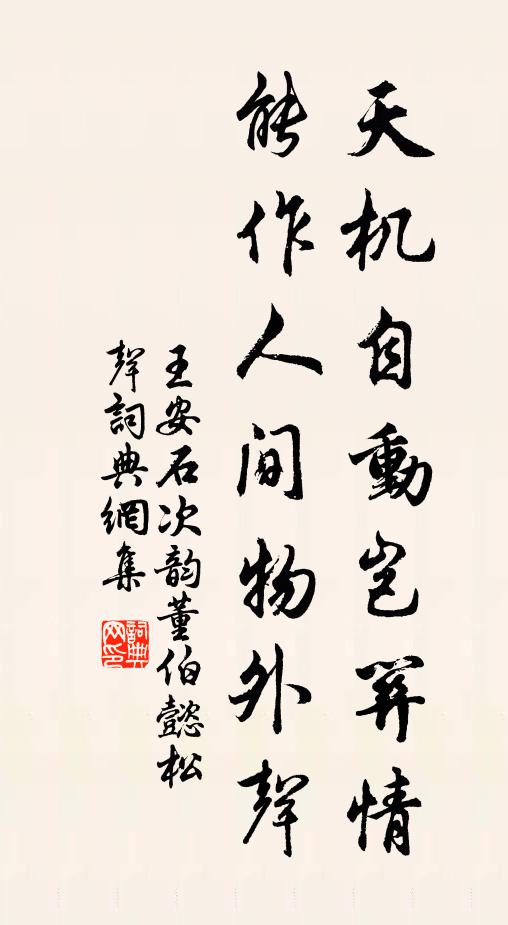 天机自動岂關情
能作人间物外聲
王安石次韵董伯懿松
聲詞典網集
詞典网印